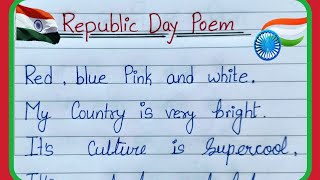 Republic Day Poem
Red, blue Pink and white.
My Country is very bright.
It's Culture is Supercool,